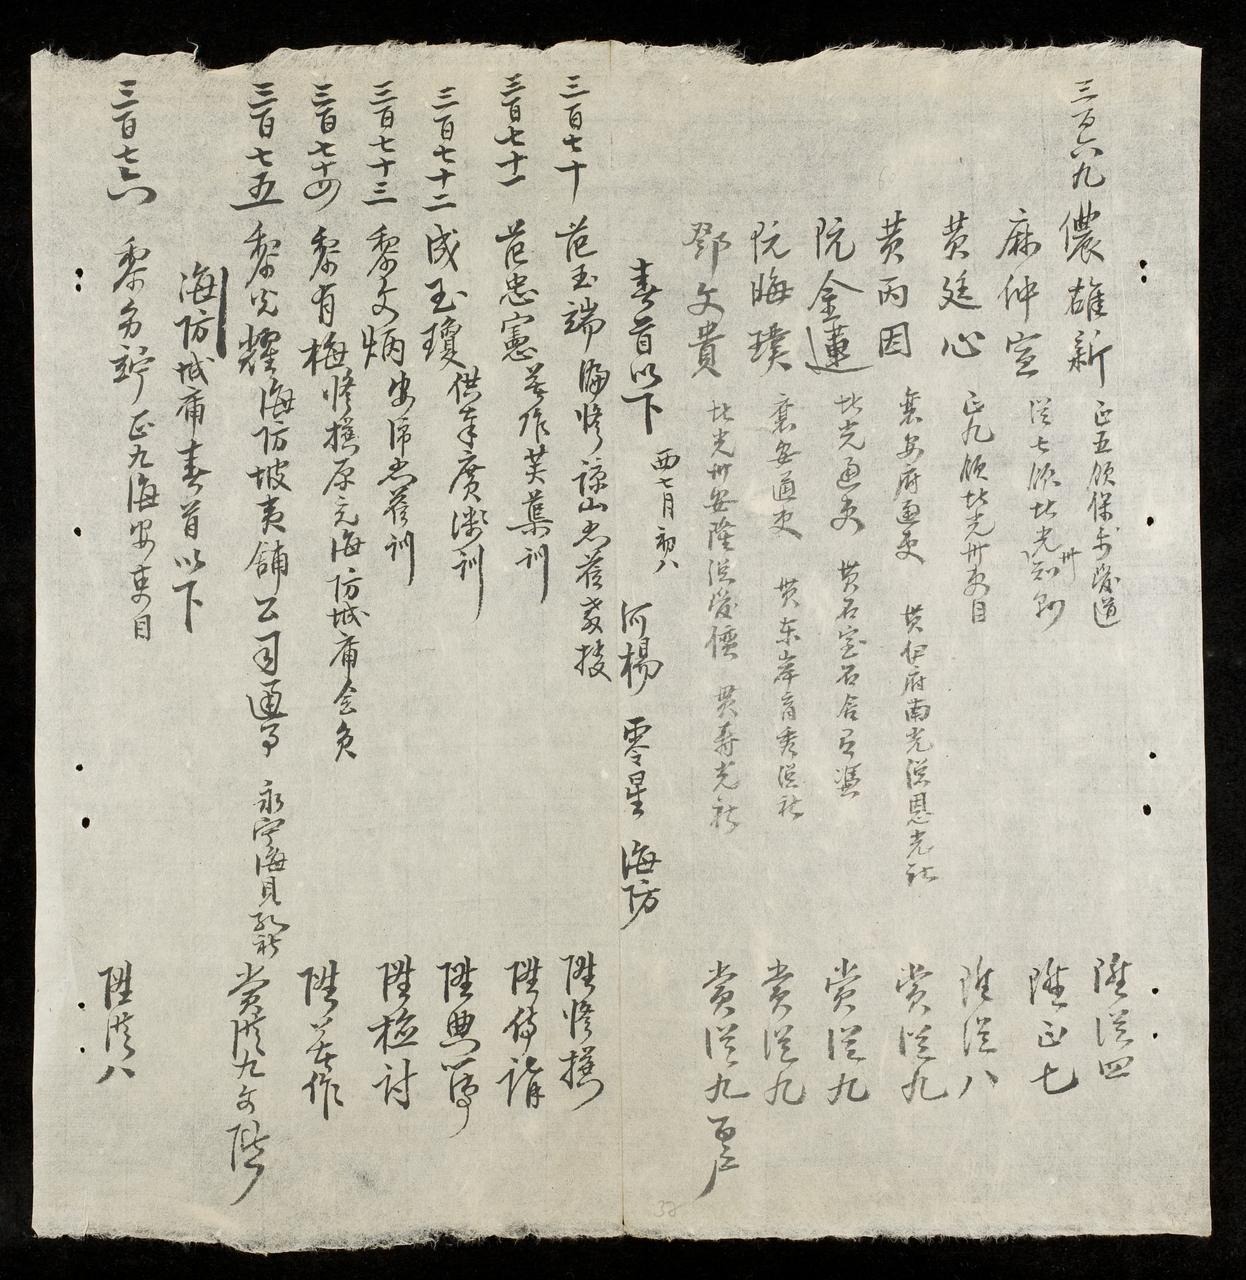 三百六九 儂雄新 正五領保 道 陞從四
麻仲宣 從七領北光州知州 陞正七
黄廷心 正九領北光州吏目 陞從八
黄丙因 襄安府通吏 貫伊府南光從恩光社 賞從九
阮金蓮 北光通吏 黄石室石含 賞從九
阮晦璞 襄安通吏 貫東岸育秀從社 賞從九
鄧文貴 北光州安隆從 貫壽光社 賞從九
春首以下 西七月初八 河楊 零星 海防
三百七十 范玉端 編修諒山 陞修撰
三百七十一 范忠憲 著作芙蕖訓 陞侍講
三百七十二 成玉瓊 供奉廣 訓 陞典簿
三百七十三 黎文炳 安沛 訓 陞檢討
三百七十四 黎有梅 修撰原充海防城庯僉員 陞著作
三百七五 黎光耀 海防坡夷舖公司通事 永寧海貝 社 賞從九文階
海防城庯春首以下
三百七六 黎 正九海安吏目 陞從八
32